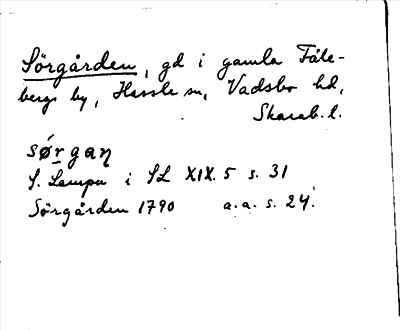 Sörgården, gd i gamla Fåle-
bergs by, Hassle sn, Vadsbo hd,
Skarab. l.
sørgaɳ
S. Lampa i SL XIX. 5 s. 31
Sörgården 1790 a.a. s. 24.